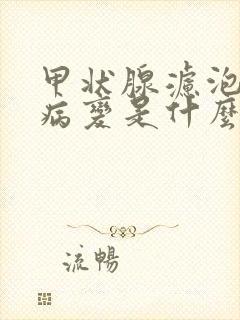 甲状腺濾泡
病變是什麼
流暢